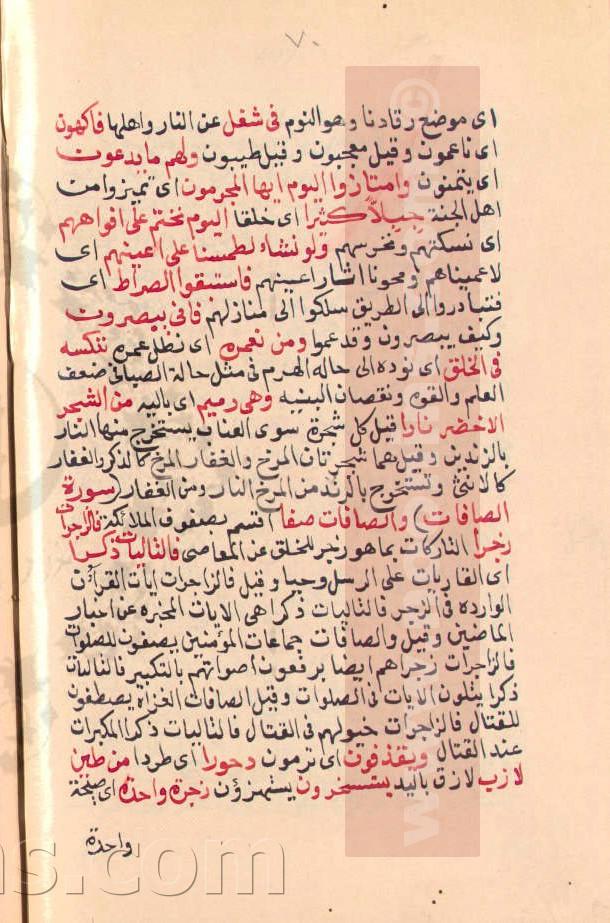 ٧٠
اى موضع رقادنا وهو النوم فى شغل عن النار واهلها فاكهون
اى ناعمون وقيل معجبون وقيل طيبون ولهم ما يدعون
اى يتمنون وامتازوا اليوم ايها المجرمون اى تميزوا من
اهل الجنة جبلاً كثيرا اى خلقا اليوم نختم على افواههم
اى نسكتهم ونخرسهم ولو نشاء لطمسنا على اعينهم اى
لاعميناهم ومحونا اثار اعينهم فاستبقوا الصراط اى
فتبادروا الى الطريق سلكوا الى منازلهم فانى يبصرون
وكيف يبصرون وقد عموا ومن نعمره اى نطل عمره ننكسه
فى الخلق اى نوده الى حاله الهرم فى مثل حالة الصبا فى ضعف
العلم والقوه ونقصان البنيه وهى رميم اى باليه من الشجر
الاخضر نارا قيل كل شجرة سوى العناب يستخرج منها النار
بالزندين وقيل هما شجرتان المرخ والغفار المرخ كالذكر والغفار
كالانثى وتستخرج بالزند من المرخ النار ومن الغفار (سورة
الصافات) والصافات صفا اقسم بصفوف الملائكة فالزاجرات
زجرا التاركات بما هو زجر للخلق عن المعاصى فالتاليات ذكرا
اى القاريات على الرسل وحيا وقيل فالزاجرات ايات القرآن
الوارده فى الزجر فالتاليات ذكرا هى الايات المخبره عن اخبار
الماضين وقيل والصافات جماعات المؤمنين يصفون للصلوات
فالزاجرات زجرا هم ايضا يرفعون اصواتهم بالتكبير فالتاليات
ذكرا يتلون الايات فى الصلوات وقيل الصافات الغزاه يصطفون
للقتال فالزاجرات خيولهم فى القتال فالتاليات ذكرا المكبرات
عند القتال ويقذفون اى ترمون دحورا اى طردا من طين
لازب لازق باليد يستسخرون يستهزؤن زجرة واحدة اى صيحة
واحدة
ns.com